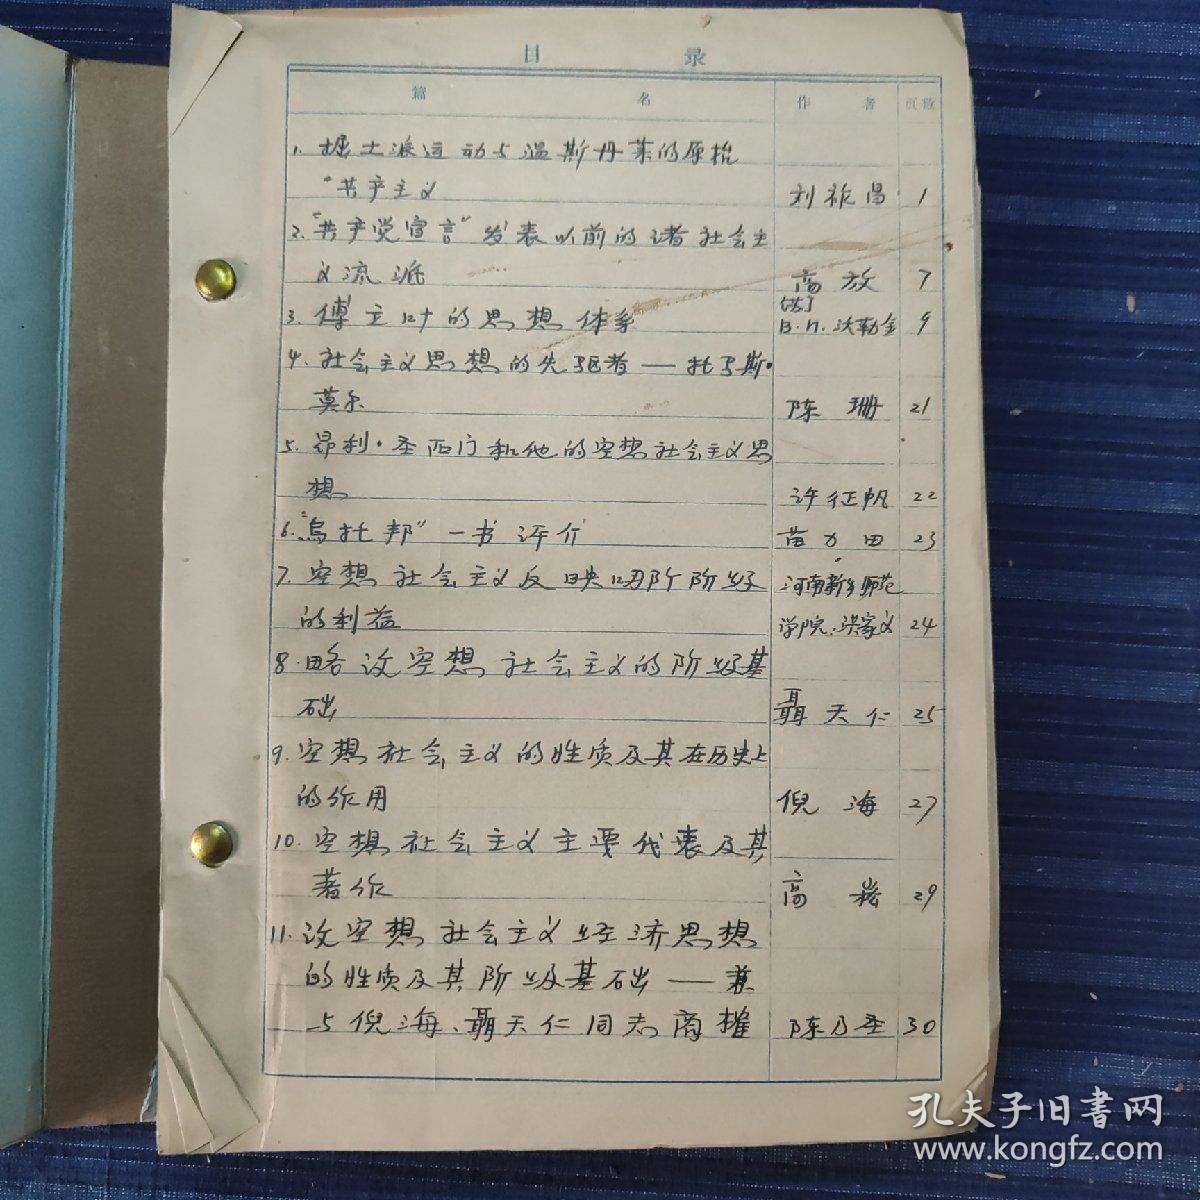 目 录
篇 名 作 者 页数
1. 掘土派运动与温斯丹莱的原始
“共产主义 刘祚昌 1
2. “共产党宣言”发表以前的诸社会主
义流派 高放 7
3. 傅立叶的思想体系 [苏] В.П.沃勒金 9
4. 社会主义思想的先驱者——托马斯·
莫尔 陈珊 21
5. 昂利·圣西门和他的空想社会主义思
想 许征帆 22
6. “乌托邦”一书评介 苗力田 23
7. 空想社会主义反映哪阶阶级 河南新乡师范
的利益 学院:洪家义 24
8. 略谈空想社会主义的阶级基
础 聂天仁 25
9. 空想社会主义的性质及其在历史上
的作用 倪海 27
10. 空想社会主义主要代表及其
著作 高崧 29
11. 谈空想社会主义经济思想
的性质及其阶级基础——兼
与倪海、聂天仁同志商榷 陈乃圣 30
孔夫子旧书网
www.kongfz.com